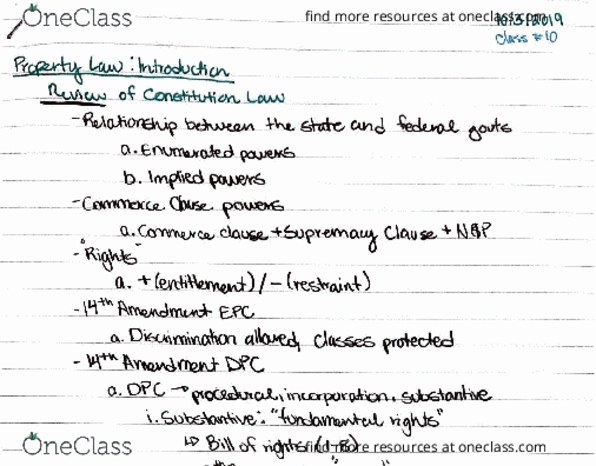 OneClass
find more resources at oneclass.com
10/3/2019
Class #10
Property Law: Introduction
Review of Constitution Law
- Relationship between the state and federal govts
a. Enumerated powers
b. Implied powers
- Commerce Clause powers
a. Commerce clause + Supremacy Clause + N&P
- "Rights"
a. + (entitlement) / - (restraint)
- 14th Amendment EPC
a. Discrimination allowed, classes protected
- 14th Amendment DPC
a. DPC → procedural, incorporation, substantive
i. Substantive: "fundamental rights"
↳ Bill of rights (1-8)
OneClass
find more resources at oneclass.com